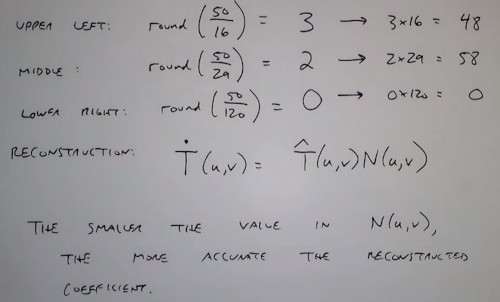 UPPER LEFT: round (50/16) = 3 → 3×16 = 48
MIDDLE: round (50/29) = 2 → 2×29 = 58
LOWER RIGHT: round (50/120) = 0 → 0×120 = 0
RECONSTRUCTION: Ṫ(u,v) = T̂(u,v)N(u,v)
THE SMALLER THE VALUE IN N(u,v),
THE MORE ACCURATE THE RECONSTRUCTED
COEFFICIENT.